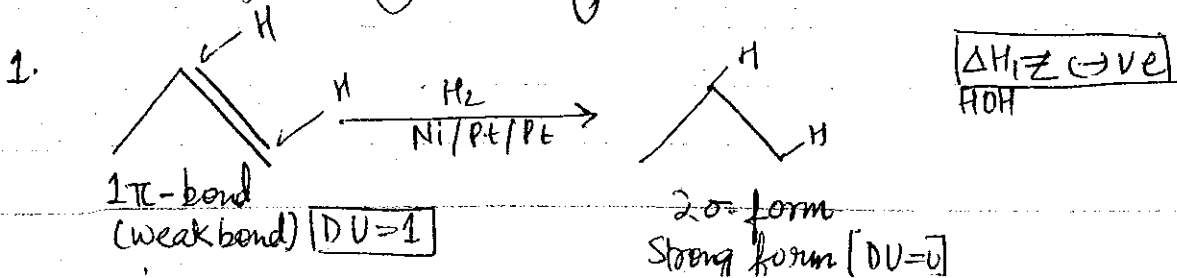 1.
H
H
H2
Ni/Pt/Pt
H
H
ΔH1 = (-)ve
HOH
1π-bond
(weak bond) DU=1
2σ-form
Strong form [DU=0]